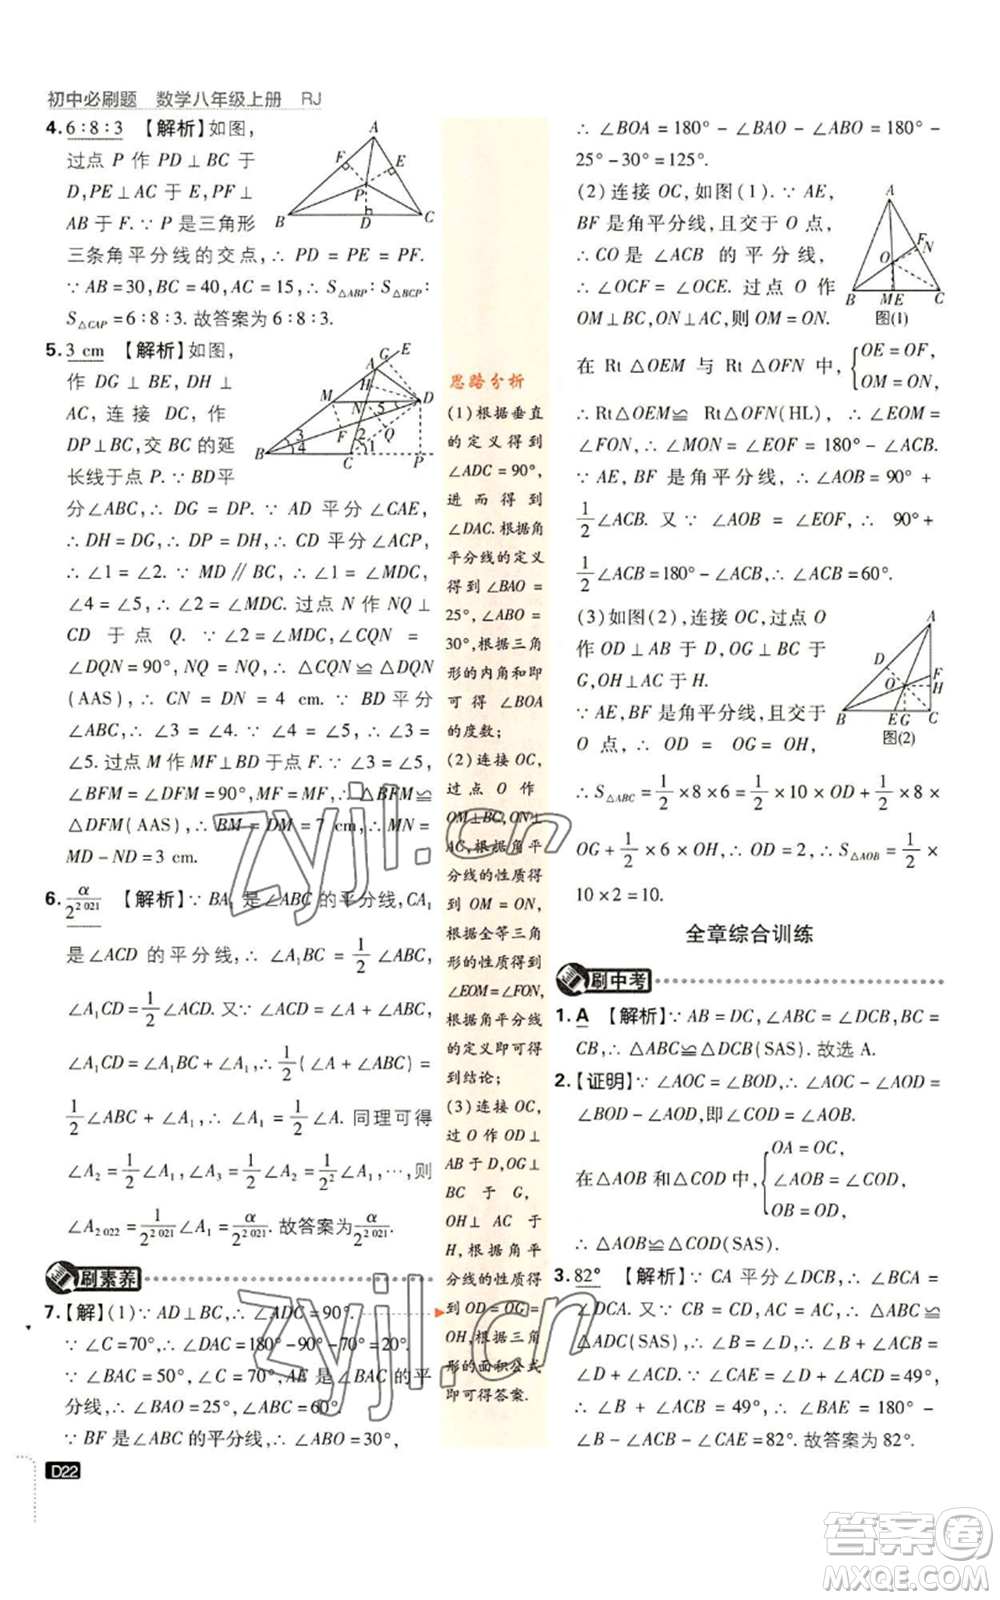 初中必刷题 数学八年级上册 RJ
4.6∶8∶3 【解析】如图,
过点 P 作 PD⊥BC 于
D,PE⊥AC 于 E,PF⊥
AB 于 F.∵P 是三角形
三条角平分线的交点,
∴PD = PE = PF.
∵AB=30,BC=40,AC=15,∴S△ABP∶S△BCP∶
S△CAP=6∶8∶3.故答案为6∶8∶3.
A
F
E
P
B
D
C
5.3 cm 【解析】如图,
作 DG⊥BE,DH⊥
AC,连接 DC,作
DP⊥BC,交 BC 的延
长线于点 P.∵BD平
分∠ABC,∴DG=DP.∵AD 平分∠CAE,
∴DH=DG,∴DP=DH,∴CD 平分∠ACP,
∴∠1=∠2.∵MD∥BC,∴∠1=∠MDC,
∠4=∠5,∴∠2=∠MDC.过点 N 作 NQ⊥
CD 于点 Q.∵∠NQC=∠CQN=
A G E
M H D
N 5
3 F 2 Q
4 1
B C P
∠DQN=90°,NQ=NQ,∴△CQN≌△DQN
(AAS),∴CN=DN=4 cm.∵BD 平分
∠ABC,∴∠3=∠4.∵∠4=∠5,∴∠3=
∠5.过点 M 作 MF⊥BD 于点 F,∴
∠BFM=∠DFM=90°,MF=MF,∴△BFM≌
△DFM(AAS),∴BM=DM=7 cm,∴MN=
MD-ND=3 cm.
6.α/2^2 021 【解析】∵BA₁ 是∠ABC 的平分线,CA₁
是∠ACD 的平分线,∴∠A₁BC=1/2∠ABC,
∠A₁CD=1/2∠ACD.又∵∠ACD=∠A+∠ABC,
∠A₁CD=∠A₁BC+∠A₁,∴1/2(∠A+∠ABC)=
1/2∠ABC+∠A₁,∴∠A₁=1/2∠A=α/2.同理可得
∠A₂=1/2∠A₁=α/2²,∠A₃=1/2∠A₂=α/2³,…,则
∠A₂ ₀₂₂=1/2^2 021∠A₁=α/2^2 021.故答案为α/2^2 021.
刷素养
7.【解】(1)∵AD⊥BC,∴∠ADC=90°.
∵∠C=70°,∴∠DAC=180°-90°-70°=20°.
∵∠BAC=50°,∠C=70°,AE 是∠BAC 的平
分线,∴∠BAO=25°,∠ABC=60°.
∵BF 是∠ABC 的平分线,∴∠ABO=30°,
D22
思路分析
(1)根据垂直
的定义得到
∠ADC=90°,
进而得到
∠DAC.根据角
平分线的定义
得到∠BAO=
25°,∠ABO=
30°,根据三角
形的内角和即
可得∠BOA
的度数;
(2)连接 OC,
过点 O 作
OM⊥BC,ON⊥
AC,根据角平
分线的性质得
到 OM=ON,
根据全等三角
形的性质得到
∠EOM=∠FON,
根据角平分线
的定义即可得
到结论;
(3)连接 OC,
过 O 作 OD⊥
AB 于 D,OG⊥
BC 于 G,
OH⊥AC 于
H,根据角平
分线的性质得
到 OD=OG=
OH,根据三角
形的面积公式
即可得答案.
∴∠BOA=180°-∠BAO-∠ABO=180°-
25°-30°=125°.
(2)连接 OC,如图(1).∵AE,
BF 是角平分线,且交于 O 点,
∴CO 是∠ACB 的平分线,
∴∠OCF=∠OCE.过点 O 作
OM⊥BC,ON⊥AC,则 OM=ON.
A
F N
O
B M E C
图(1)
在 Rt△OEM 与 Rt△OFN 中, { OE=OF, OM=ON,
∴Rt△OEM≌Rt△OFN(HL),∴∠EOM=
∠FON,∴∠MON=∠EOF=180°-∠ACB.
∵AE,BF 是角平分线,∴∠AOB=90°+
1/2∠ACB.又∵∠AOB=∠EOF,∴90°+
1/2∠ACB=180°-∠ACB,∴∠ACB=60°.
(3)如图(2),连接 OC,过点 O
作 OD⊥AB 于 D,OG⊥BC 于
G,OH⊥AC 于 H.
∵AE,BF 是角平分线,且交于
O 点,∴OD=OG=OH,
A
D
F
O H
B E G C
图(2)
∴S△ABC=1/2×8×6=1/2×10×OD+1/2×8×
OG+1/2×6×OH,∴OD=2,∴S△AOB=1/2×
10×2=10.
全章综合训练
刷中考
1.A 【解析】∵AB=DC,∠ABC=∠DCB,BC=
CB,∴△ABC≌△DCB(SAS).故选 A.
2.【证明】∵∠AOC=∠BOD,∴∠AOC-∠AOD=
∠BOD-∠AOD,即∠COD=∠AOB.
在△AOB 和△COD 中, { OA=OC, ∠AOB=∠COD, OB=OD,
∴△AOB≌△COD(SAS).
3.82° 【解析】∵CA 平分∠DCB,∴∠BCA=
∠DCA.又∵CB=CD,AC=AC,∴△ABC≌
△ADC(SAS),∴∠B=∠D,∴∠B+∠ACB=
∠D+∠ACD.∵∠CAE=∠D+∠ACD=49°,
∴∠B+∠ACB=49°,∴∠BAE=180°-
∠B-∠ACB-∠CAE=82°.故答案为 82°.
zyjl.cn
zyjl.cn
答案卷
MXQE.COM